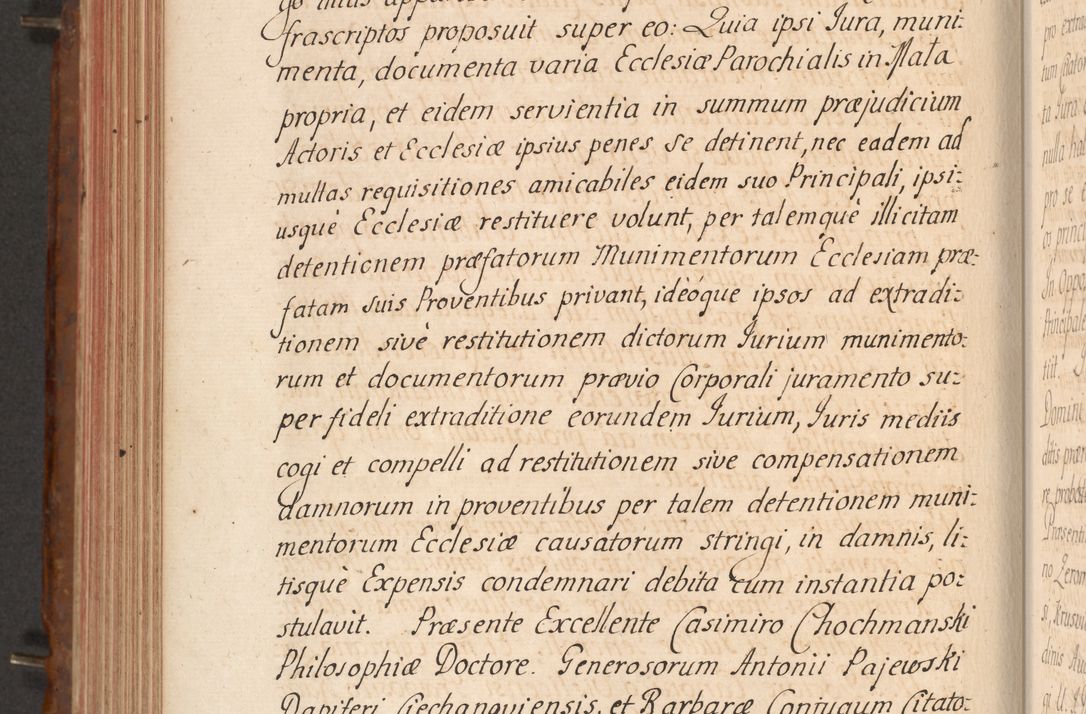 frascriptos proposuit super eo: Quia ipsi Jura, muni:
menta, documenta varia Ecclesiæ Parochialis in Mała
propria, et eidem servientia in summum præjudicium
Actoris et Ecclesiæ ipsius penes se detinent, nec eadem ad
multas requisitiones amicabiles eidem suo Principali, ipsi:
usquè Ecclesiæ restituere volunt, per talemquè illicitam
detentionem præfatorum Munimentorum Ecclesiam præ:
fatam suis Proventibus privant, ideóque ipsos ad extradi:
tionem sivè restitutionem dictorum Jurium munimento:
rum et documentorum prævio Corporali juramento su:
per fideli extraditione eorundem Jurium, Juris mediis
cogi et compelli ad restitutionem sive compensationem
damnorum in proventibus per talem detentionem muni:
mentorum Ecclesiæ causatorum stringi, in damnis, li:
tisquè Expensis condemnari debita cum instantia po:
stulavit. Præsente Excellente Casimiro Chochmanski
Philosophiæ Doctore. Generosorum Antonii Pajewski
Dapiferi Ciechanoviensis, et Barbaræ Conjugum Citato: